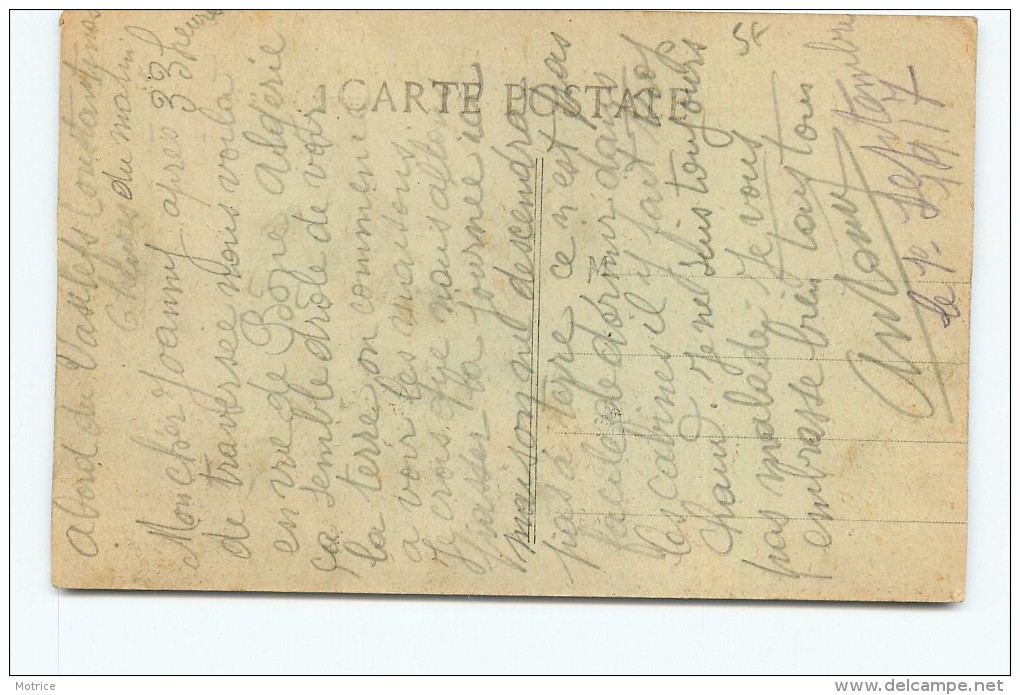 abord du Vassefs Constantine
6 heures du matin
Mon cher Joanny après 33 heures
de traversée nous voilà
en vue de Bône algérie
ça semble drôle de voir
la terre on commence
a voir les maisons
Je crois que nous allons
passer la journée ici
mais on ne descendra
pas à terre ce n'est pas
facile de dormir dans
les cabines il y fait trop
chaud. Je ne suis toujours
pas malade. Je vous
embrasse bien tous
Antoine
le 7. Septembre
1917
58
CARTE POSTALE
Motrice
delcampe.net